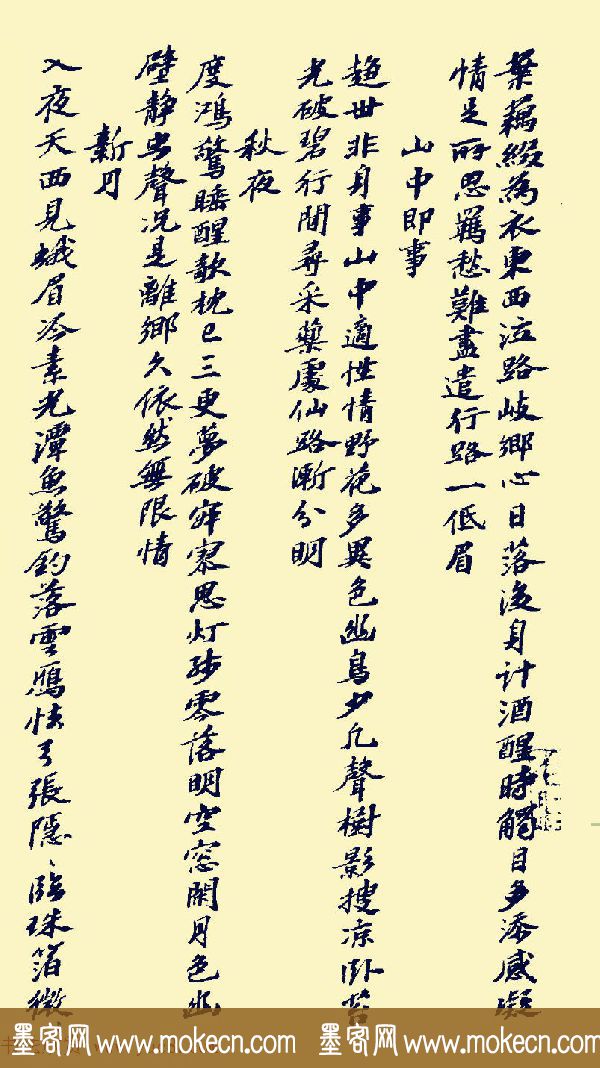 葉藕綴為衣東西泣路岐鄉心日落後身计酒醒時觸目多添感凝
情足所思羈愁難盡遣行路一低眉
山中即事
趨世非身事山中適性情野花多異色幽鳥少凡聲樹影搜涼卧苔
光破碧行閒尋采藥處仙路漸分明
秋夜
度鴻驚睡醒欹枕已三更夢破寂寥思灯殘零落明空窓閑月色幽
壁静虫聲況是離鄉久依然無限情
新月
入夜天西見蛾眉冷素光潭魚驚釣落雲鴈怯弓張隱〻臨珠箔微
墨客网 www.mokecn.com 墨客网 www.mokecn.com